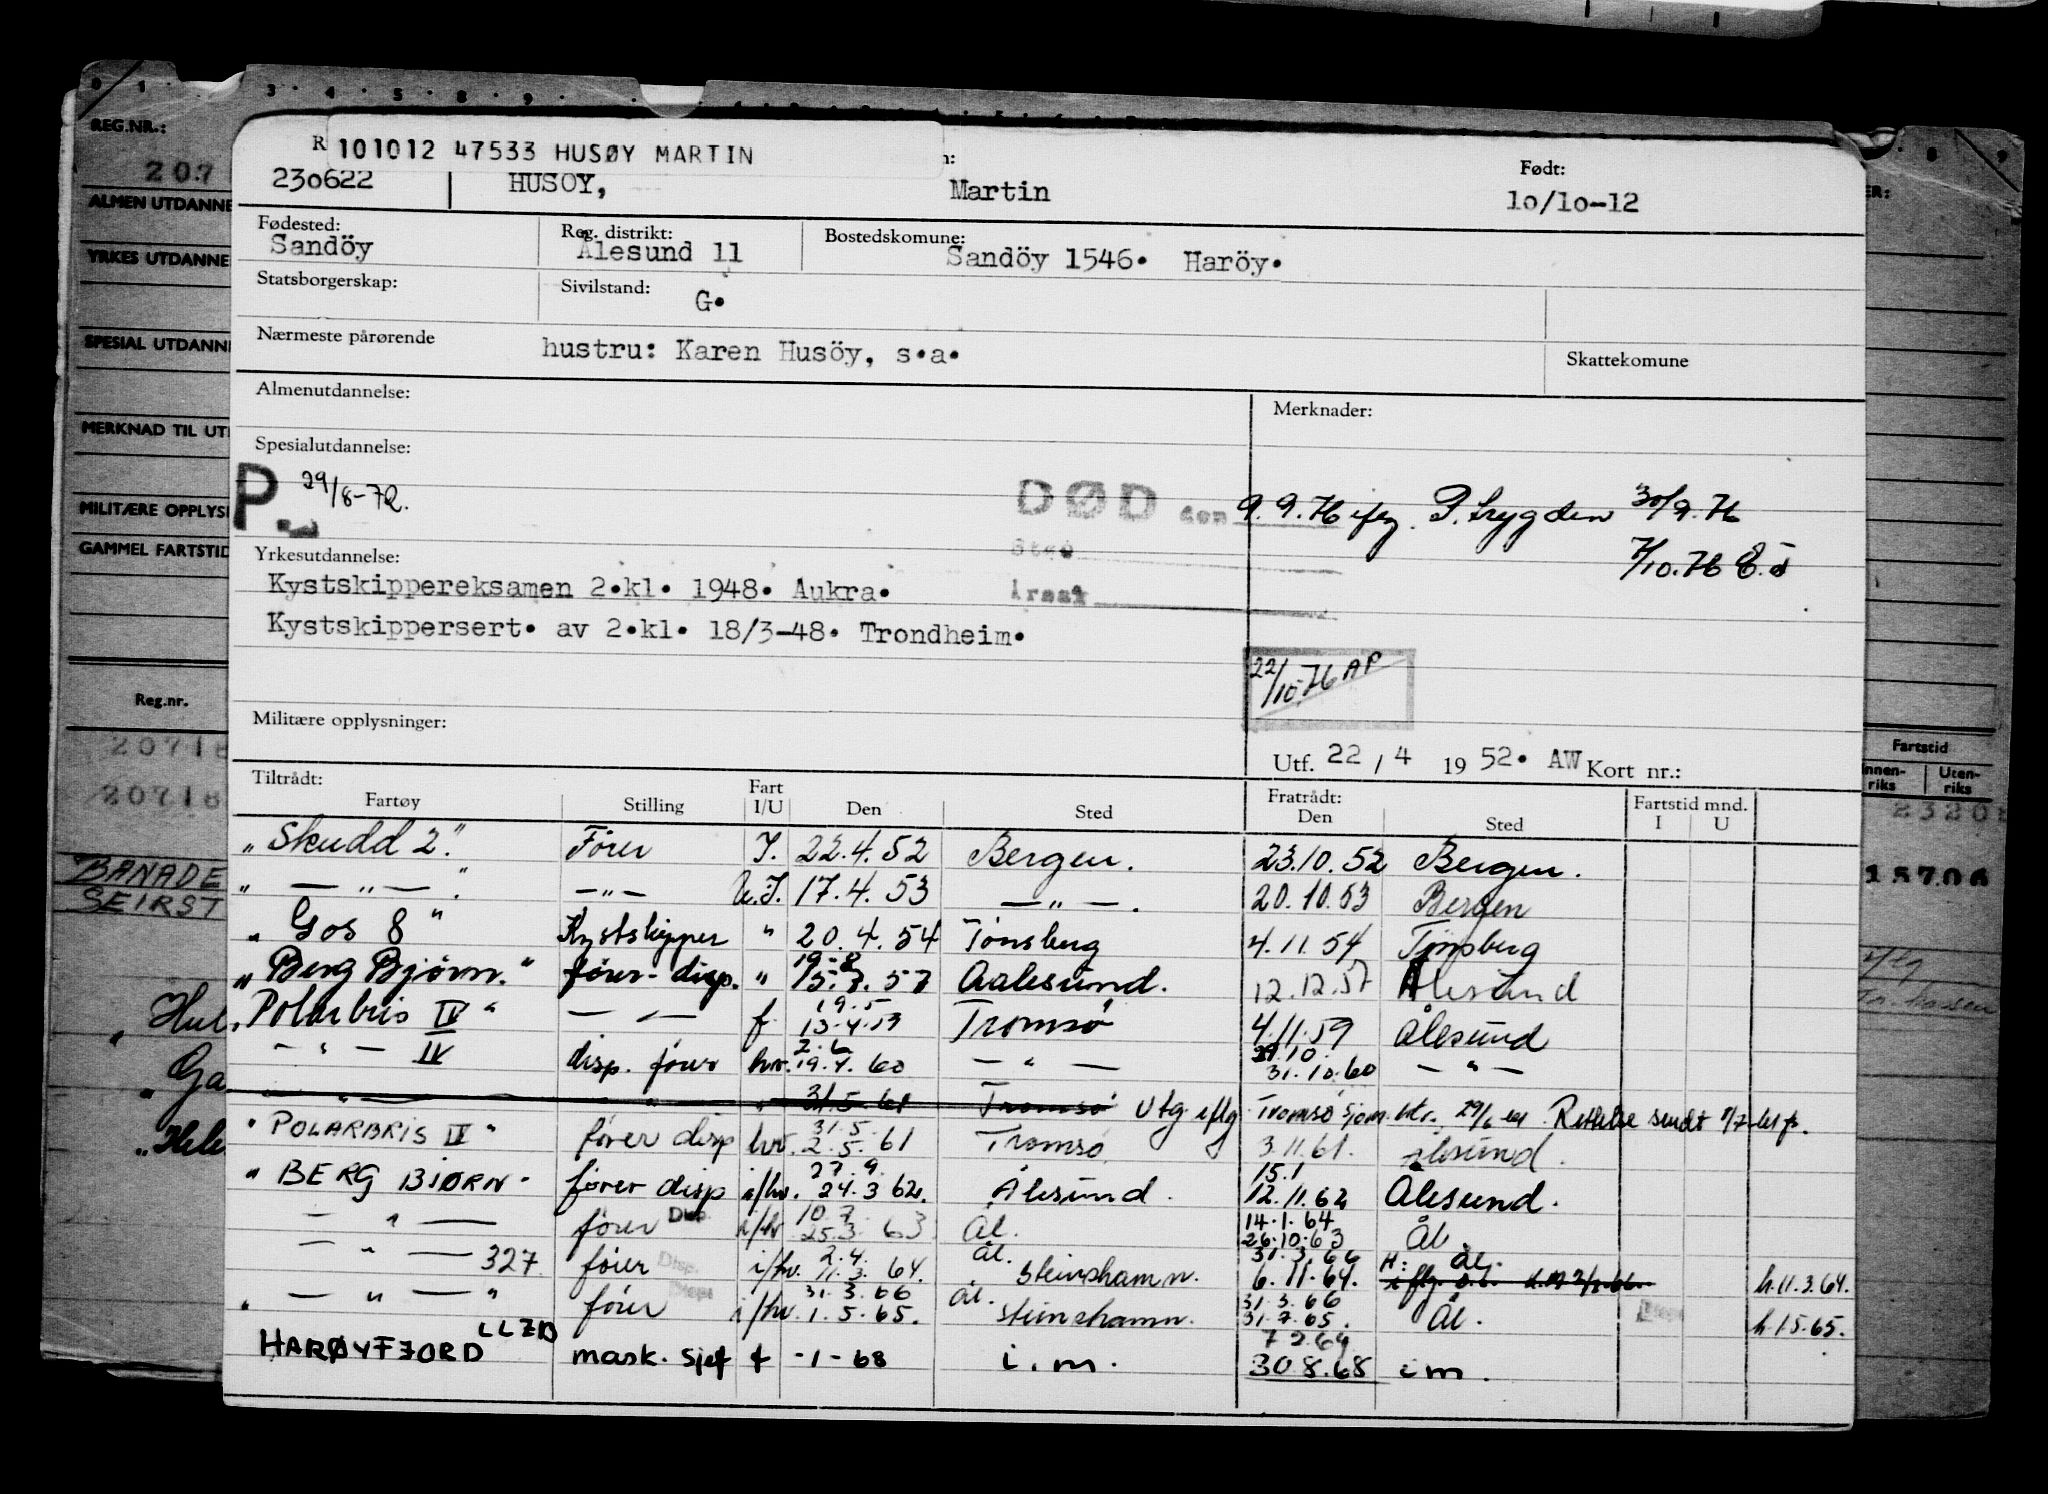 0 1 3 4 5 8 9
REG.NR.:
207
ALMEN UTDANNE
YRKES UTDANNE
SPESIAL UTDANN
MERKNAD TIL UT
MILITÆRE OPPLYS
GAMMEL FARTSTID
Reg.nr.
20718
20718
BANADE
SEIRST
R 101012 47533 HUSØY MARTIN
230622 HUSÖY, Martin
Født:
10/10-12
Fødested: Reg. distrikt: Bostedskomune:
Sandöy Ålesund 11 Sandöy 1546. Haröy.
Statsborgerskap: Sivilstand:
G.
Nærmeste pårørende
hustru: Karen Husöy, s.a.
Skattekomune
Almenutdannelse: Merknader:
Spesialutdannelse:
P. 29/8-72.
DØD den 9.9.76 iflg. P. trygden 30/9.76
Sted
7/10.76
Årsak
Yrkesutdannelse:
Kystskippereksamen 2.kl. 1948. Aukra.
Kystskippersert. av 2.kl. 18/3-48. Trondheim.
22/10-76 AP
Militære opplysninger:
Utf. 22 / 4 1952. AW Kort nr.:
Tiltrådt: Fratrådt: Fartstid mnd.
Fartøy Stilling Fart I/U Den Sted Den Sted I U
"Skudd 2." Fører I. 22.4.52 Bergen. 23.10.52 Bergen.
" — " — ." — " — U.I. 17.4.53 — " — . 20.10.53 Bergen
"Gos 8" Kystskipper " 20.4.54 Tønsberg 4.11.54 Tønsberg
19-8
"Berg Bjørn." fører-disp. " 15.7.57 Aalesund. 12.12.57 Ålesund
19.5
"Polarbris IV" — " — f 13.4.59 Tromsø 4.11.59 Ålesund
2.6 29.10.
— " — IV disp. fører hv. 19.4.60 — " — 31.10.60 — " —
— " — " " 31.5.61 Tromsø Utg. iflg. Tromsø Sjøm. ktr. 29/6-61 Rettelse sendt
31.5.
"POLARBRIS IV" fører disp hv. 2.5.61 Tromsø 3.11.61. Ålesund.
27.9. 15.1
"BERG BJØRN" fører disp i/hv. 24.3.62. Ålesund. 12.11.62 Ålesund.
10.7. 14.1.64
— " — fører Disp. i/hv 25.3.63 Ål. 26.10.63 Ål.
2.4. Ål. 31.3.66 H: Ål.
— " — 327 fører Disp. i/hv. 11.3.64. Steinshamn. 6.11.64. h.11.3.64.
31.3.66 Ål. 31.3.66
" — " — " fører Disp. i/hv. 1.5.65. Steinshamn. 31.7.65. Ål. h.1.5.65.
7.2.69
HARØYFJORD LLZD mask. sjef f -1-68 i.m. 30.8.68 i m.
8 9
ER:
Fartstid
Innen-riks Uten-riks
2320
15706